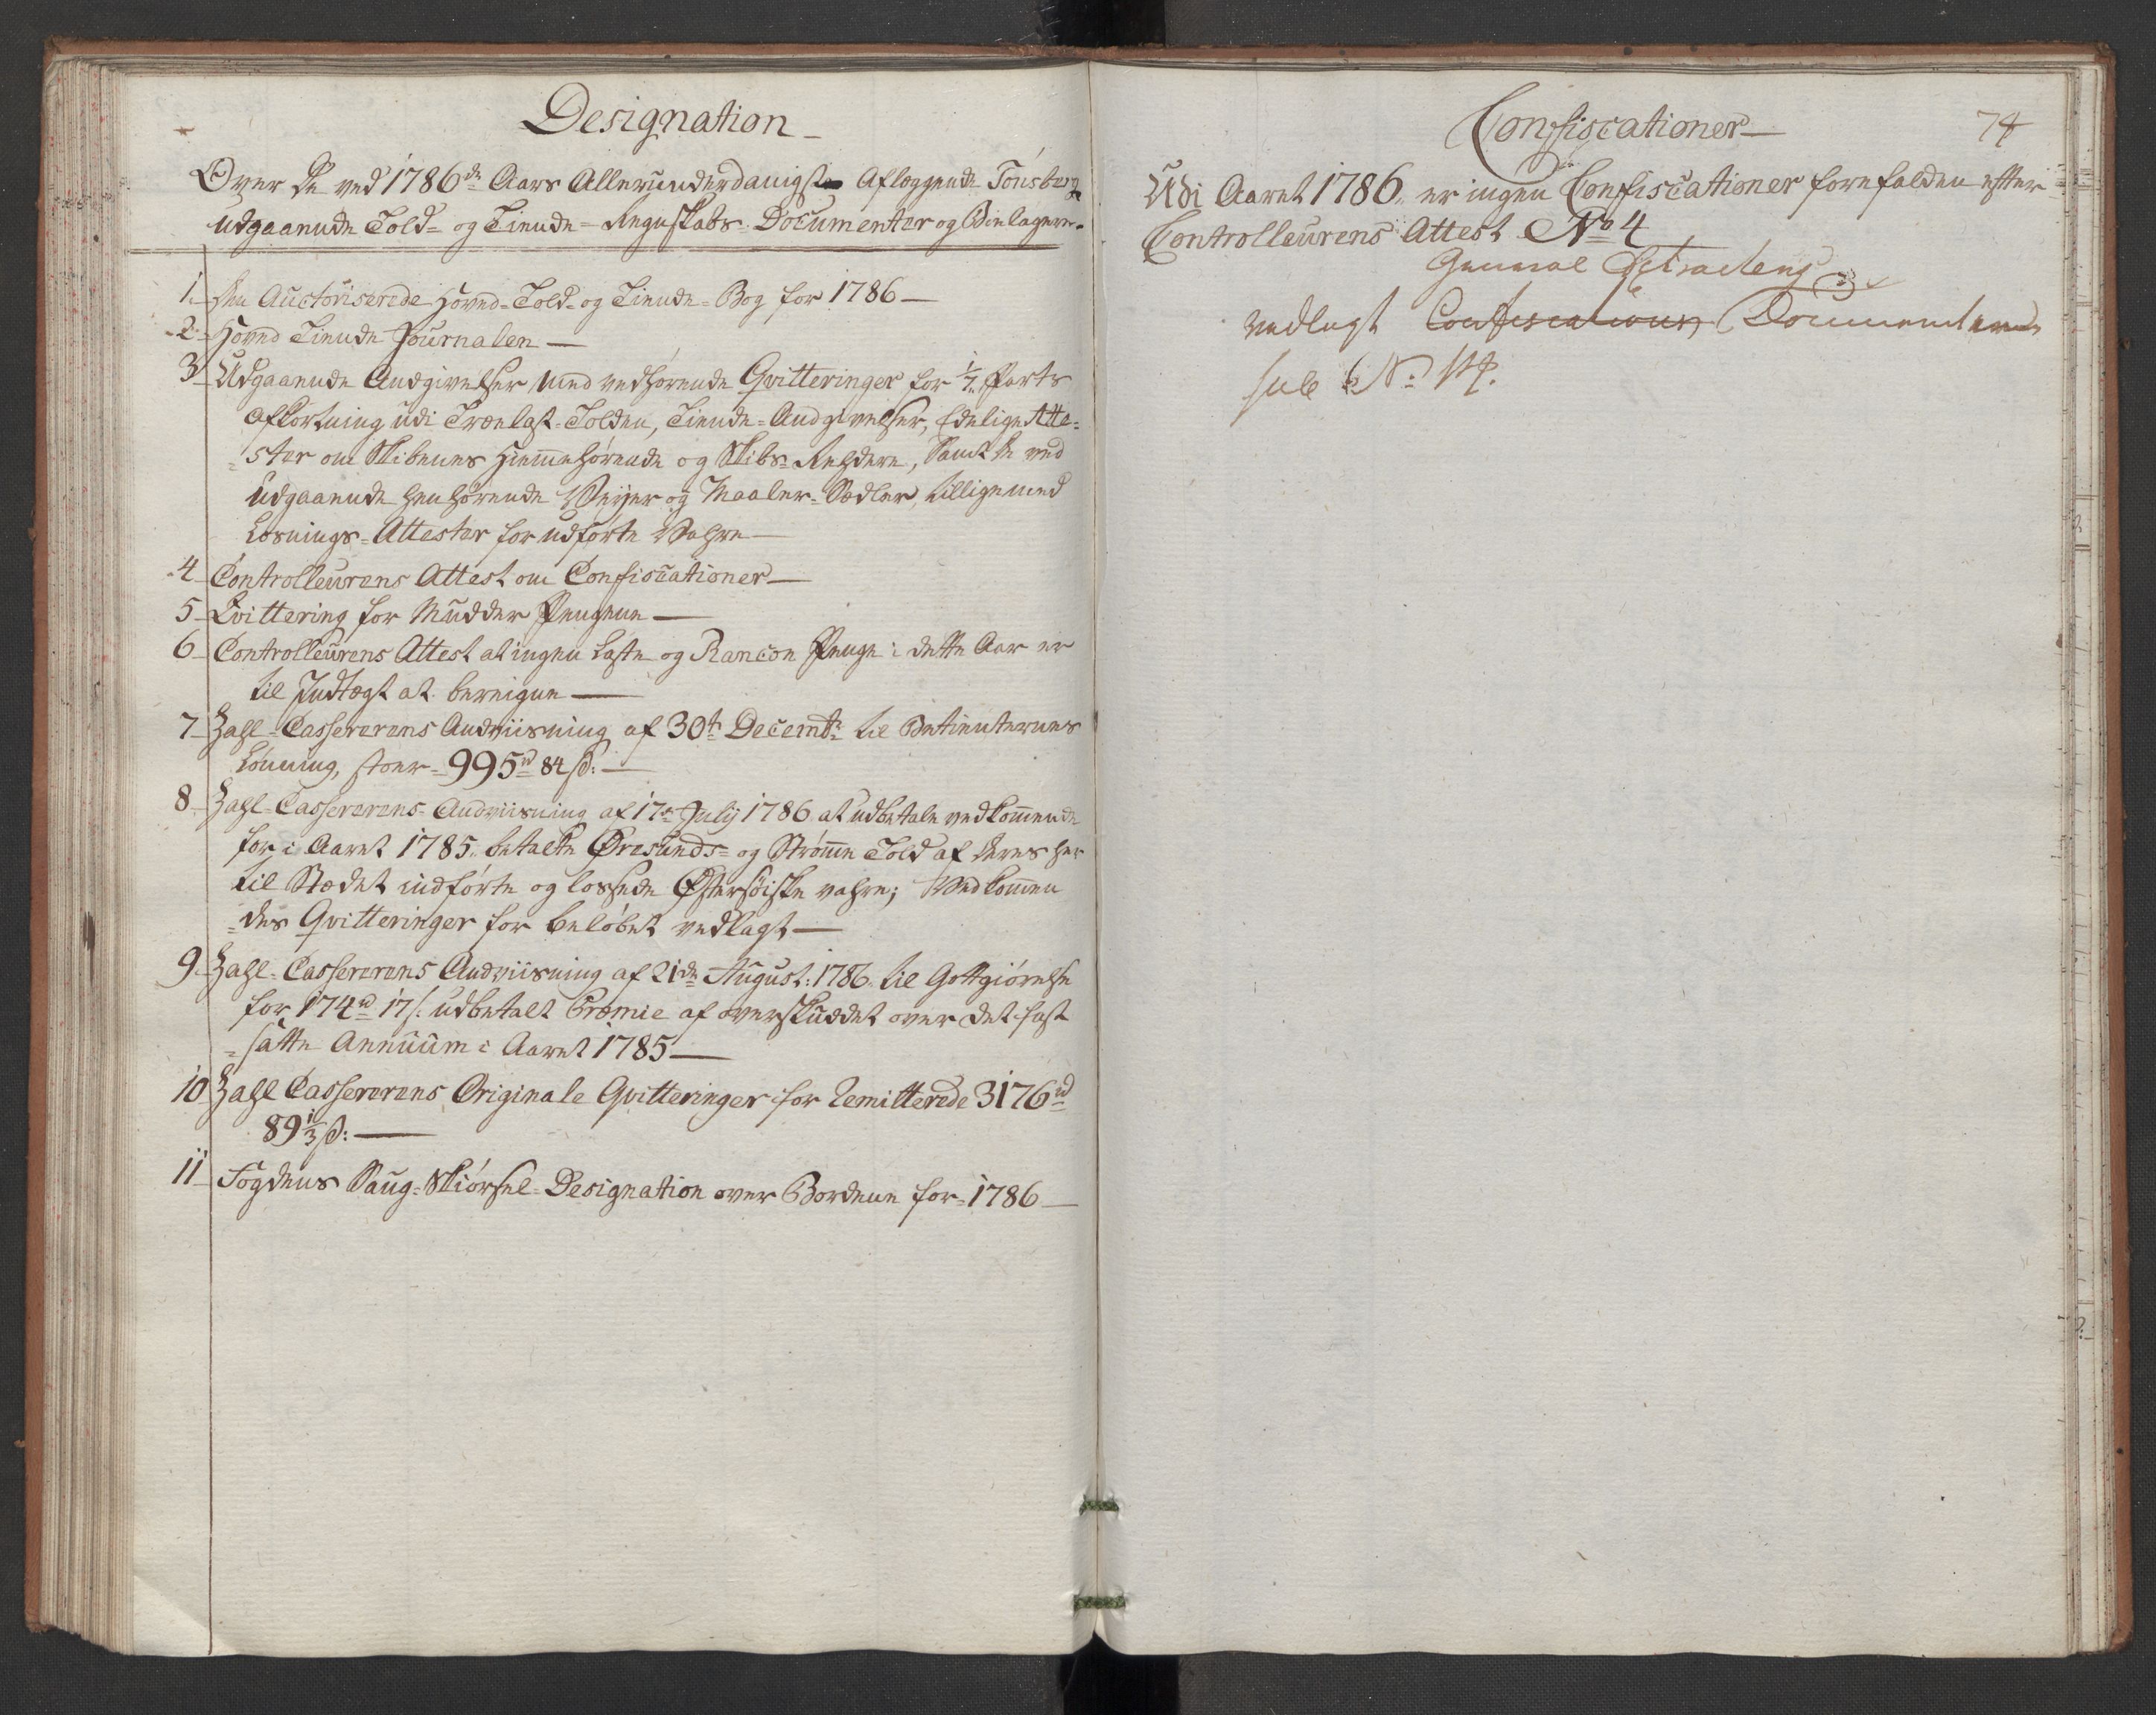 Designation
Over De ved 1786de Aars Allerunderdanigste Aflæggende Tönsberg
udgaaende Told- og Tiende-Regnskabs Documenter og Bielagere.
1. Den Auctoriserede Hoved-Told- og Tiende-Bog for 1786
2. Hoved Tiende Journalen
3 Udgaaende Andgivelser, med vedhørende Qvitteringer for 1/7 Parts
Afkortning udi Trælast-Tolden, Tiende-Andgivelser, Edelige Atte-
ster om Skibenes Hiemmehørende og Skibs-Rehdere, Samt de ved
Udgaaende henhørende Veyer og Maaler-Sedler, tilligemed
Losnings-Attester for udførte Vahre
4 Controlleurens Attest om Confiscationer
5 Qvittering for Mudder Pengene
6 Controlleurens Attest at ingen Laste og Rançon Penge i dette Aar er
til Indtægt at beregne
7 Zahl-Cassererens Andviisning af 30te Decembr til Betienternes
Lönning, stoer 995rd 84 ß:
8 Zahl-Cassererens Andviisning af 17de Julij 1786 at udbetale vedkommende
for i Aaret 1785 betalte Øresunds- og Strømme Told af deres her
til Stædet indførte og lossede Østersöiske vahre; Vedkommen
des Qvitteringer for beløbet vedlagt
9. Zahl-Cassererens Andviisning af 21de August: 1786 til Gottgiörelse
for 174rd 17 ß. udbetalt Præmie af overskuddet over det fast
satte Annuum i Aaret 1785
10 Zahl Cassererens Originale Qvitteringer for Remitterede 3176rd
89 1/3 ß:
11 Fogdens Saug-Skiørsel-Designation over Bordene for 1786
Confiscationer
74
Udi Aaret 1786 er ingen Confiscationer forefalden efter
Controlleurens Attest No 4
General Extractens
vedlagt Confiscations Documenterne
sub No